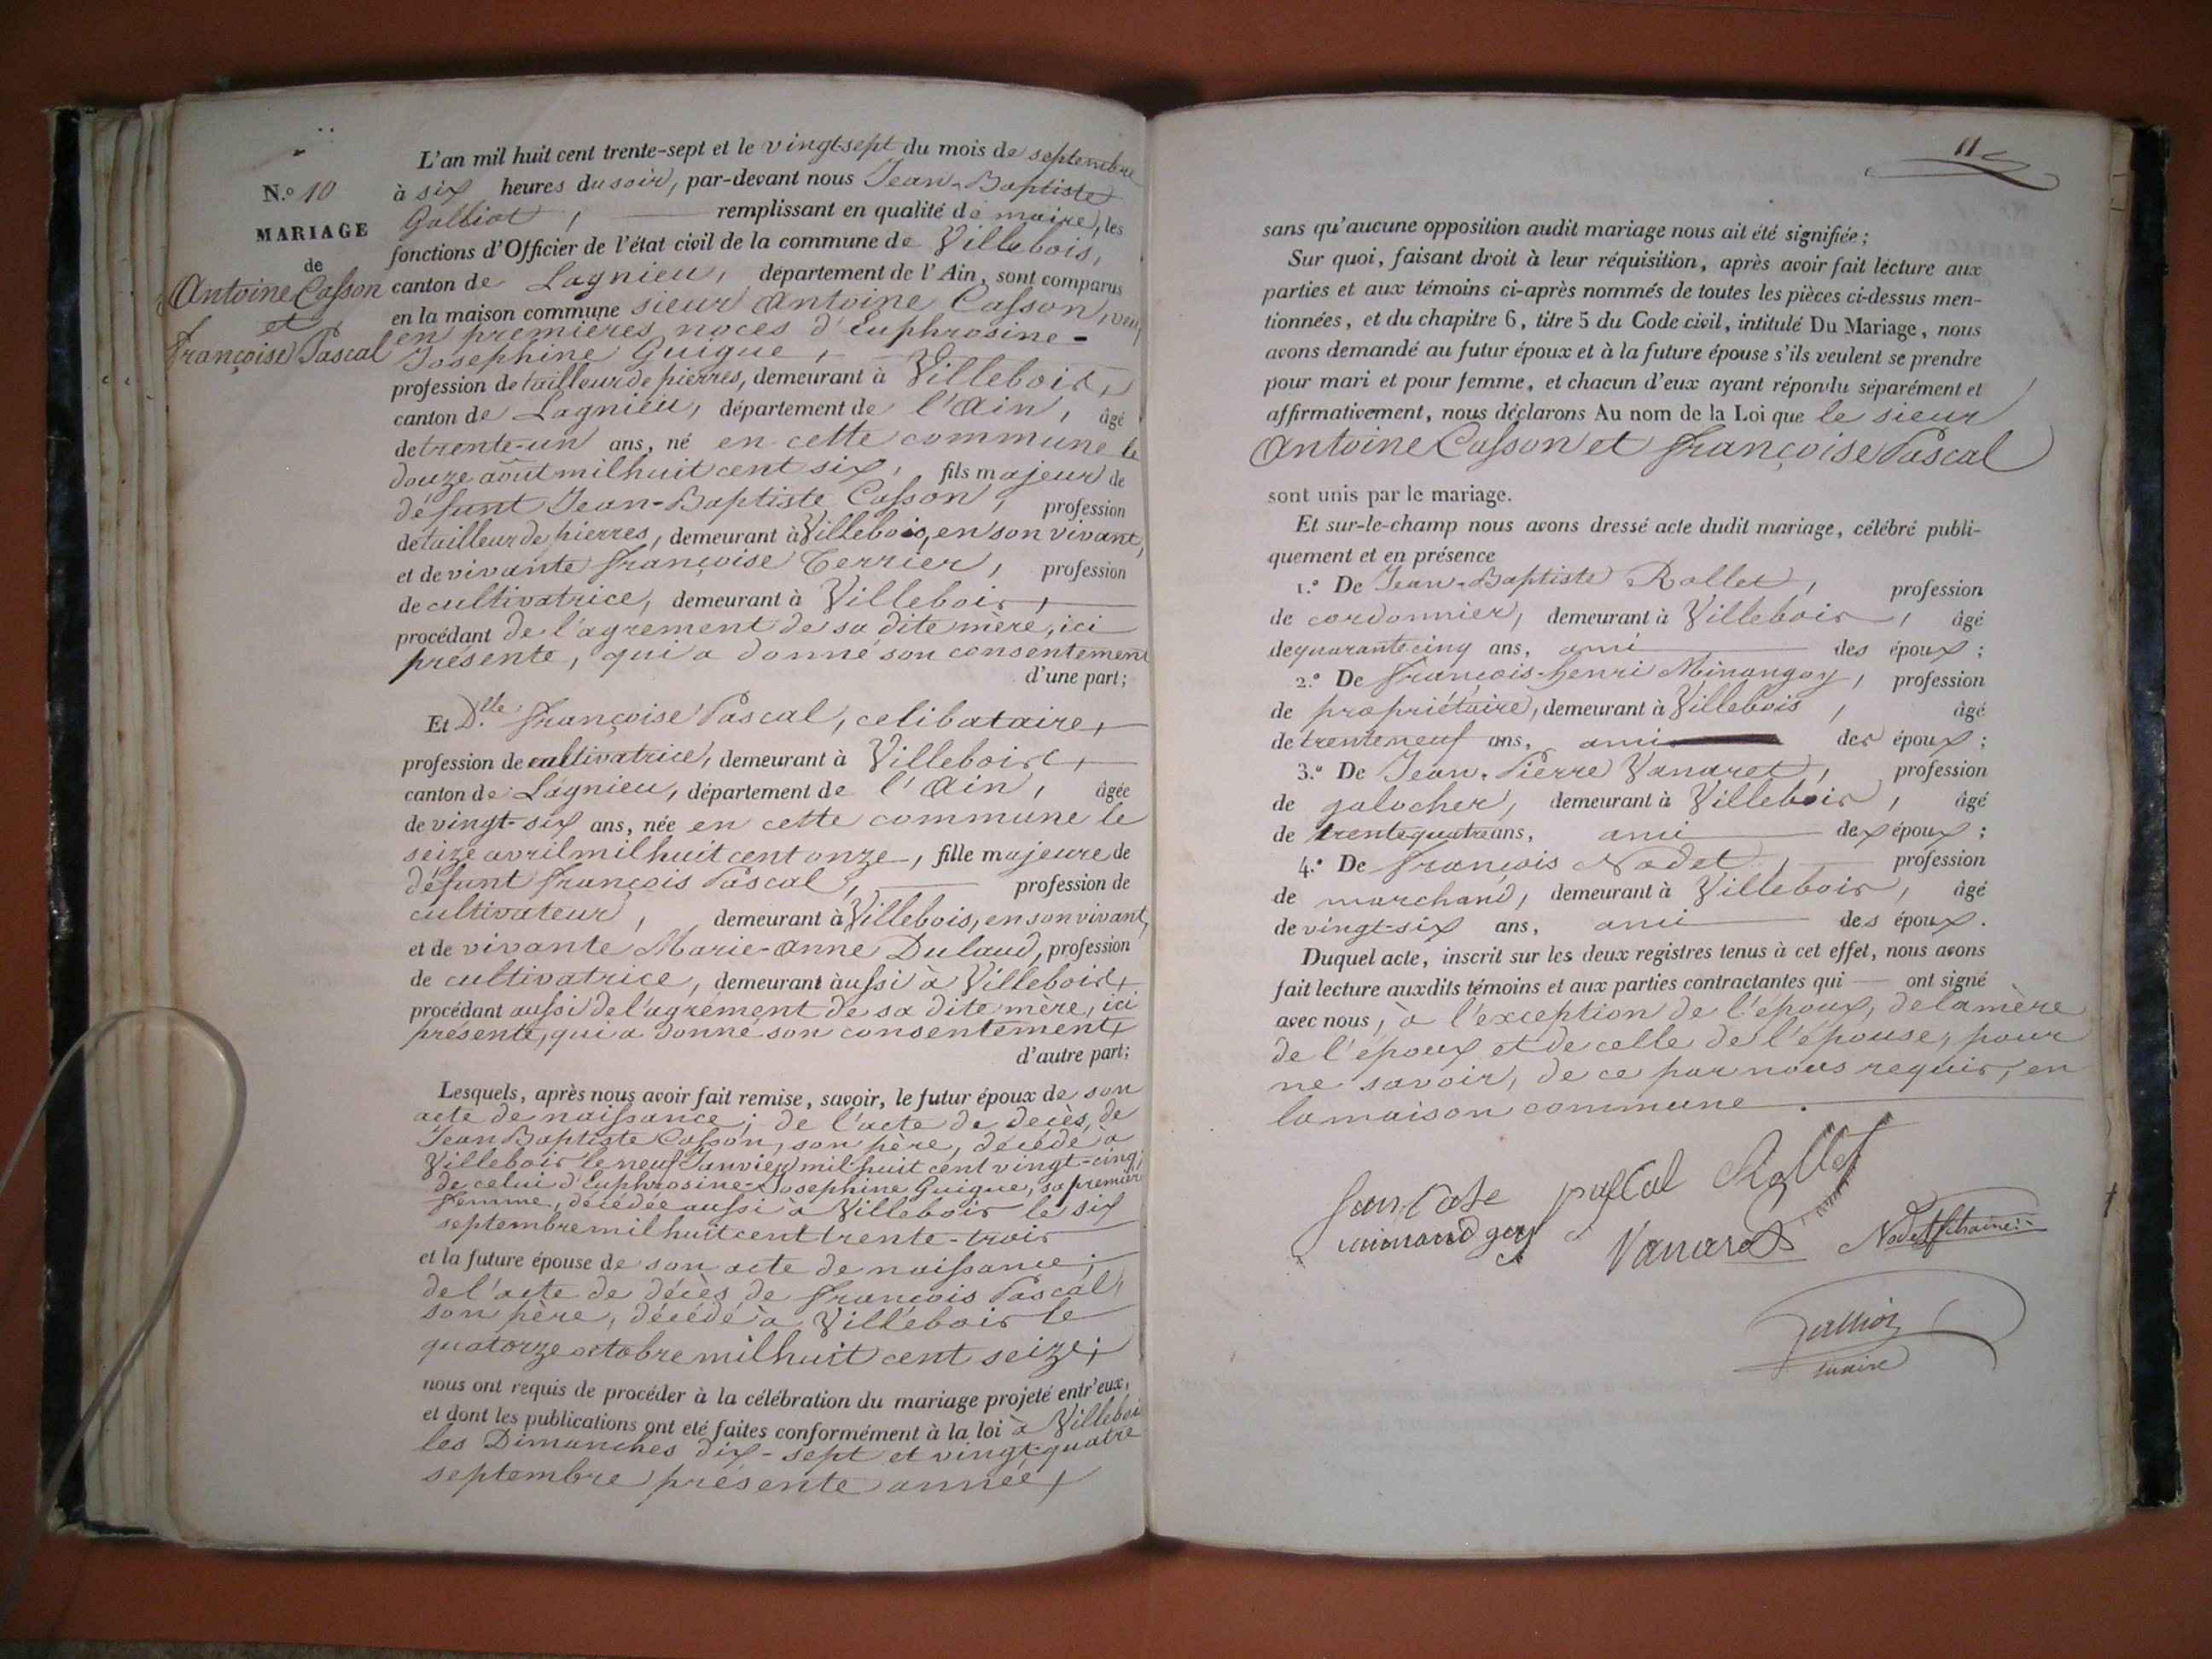 N.º 10
MARIAGE
de
Antoine Casson
et
Françoise Pascal
L'an mil huit cent trente-sept et le vingt-sept du mois de septembre
à six heures du soir, par-devant nous Jean-Baptiste
Galliot, remplissant en qualité de maire, les
fonctions d'Officier de l'état civil de la commune de Villebois,
canton de Lagnieu, département de l'Ain, sont comparus
en la maison commune sieur Antoine Casson, veuf
en premières noces d'Euphrosine-
Josephine Guigue,
profession de tailleur de pierres, demeurant à Villebois,
canton de Lagnieu, département de l'Ain, âgé
de trente-un ans, né en cette commune le
douze août mil huit cent six, fils majeur de
défunt Jean-Baptiste Casson, profession
de tailleur de pierres, demeurant à Villebois, en son vivant,
et de vivante Françoise Terrier, profession
de cultivatrice, demeurant à Villebois,
procédant de l'agrement de sa dite mère, ici
présente, qui a donné son consentement
d'une part;
Et D.lle Françoise Pascal, celibataire,
profession de cultivatrice, demeurant à Villebois,
canton de Lagnieu, département de l'Ain, âgée
de vingt-six ans, née en cette commune le
seize avril mil huit cent onze, fille majeure de
défunt François Pascal, profession de
cultivateur, demeurant à Villebois, en son vivant,
et de vivante Marie-Anne Dulaud, profession
de cultivatrice, demeurant aussi à Villebois,
procédant aussi de l'agrément de sa dite mère, ici
présente, qui a donné son consentement,
d'autre part;
Lesquels, après nous avoir fait remise, savoir, le futur époux de son
acte de naissance; de l'acte de decès de
Jean Baptiste Casson, son père, décédé à
Villebois le neuf Janvier mil huit cent vingt-cinq;
de celui d'Euphrosine-Josephine Guigue, sa premiere
femme, décédée aussi à Villebois le six
septembre mil huit cent trente-trois
et la future épouse de son acte de naissance;
de l'acte de décès de François Pascal,
son père, décédé à Villebois le
quatorze octobre mil huit cent seize;
nous ont requis de procéder à la célébration du mariage projeté entr'eux,
et dont les publications ont été faites conformément à la loi à Villebois
les Dimanches dix-sept et vingt-quatre
septembre présente année,
11
sans qu'aucune opposition audit mariage nous ait été signifiée;
Sur quoi, faisant droit à leur réquisition, après avoir fait lecture aux
parties et aux témoins ci-après nommés de toutes les pièces ci-dessus men-
tionnées, et du chapitre 6, titre 5 du Code civil, intitulé Du Mariage, nous
avons demandé au futur époux et à la future épouse s'ils veulent se prendre
pour mari et pour femme, et chacun d'eux ayant répondu séparément et
affirmativement, nous déclarons Au nom de la Loi que le sieur
Antoine Casson et Françoise Pascal
sont unis par le mariage.
Et sur-le-champ nous avons dressé acte dudit mariage, célébré publi-
quement et en présence
1.º De Jean-Baptiste Rollet, profession
de cordonnier, demeurant à Villebois, âgé
de quarante cinq ans, ami des époux;
2.º De François-henri Minangoy, profession
de propriétaire, demeurant à Villebois, âgé
de trente neuf ans, ami des époux;
3.º De Jean-Pierre Vanaret, profession
de galocher, demeurant à Villebois, âgé
de trente quatre ans, ami des époux;
4.º De François Nodet, profession
de marchand, demeurant à Villebois, âgé
de vingt-six ans, ami des époux.
Duquel acte, inscrit sur les deux registres tenus à cet effet, nous avons
fait lecture auxdits témoins et aux parties contractantes qui ont signé
avec nous, à l'exception de l'époux, de la mère
de l'époux et de celle de l'épouse, pour
ne savoir, de ce par nous requis, en
la maison commune.
pascal Rollet
Vanaret Nodet
Galliot
maire